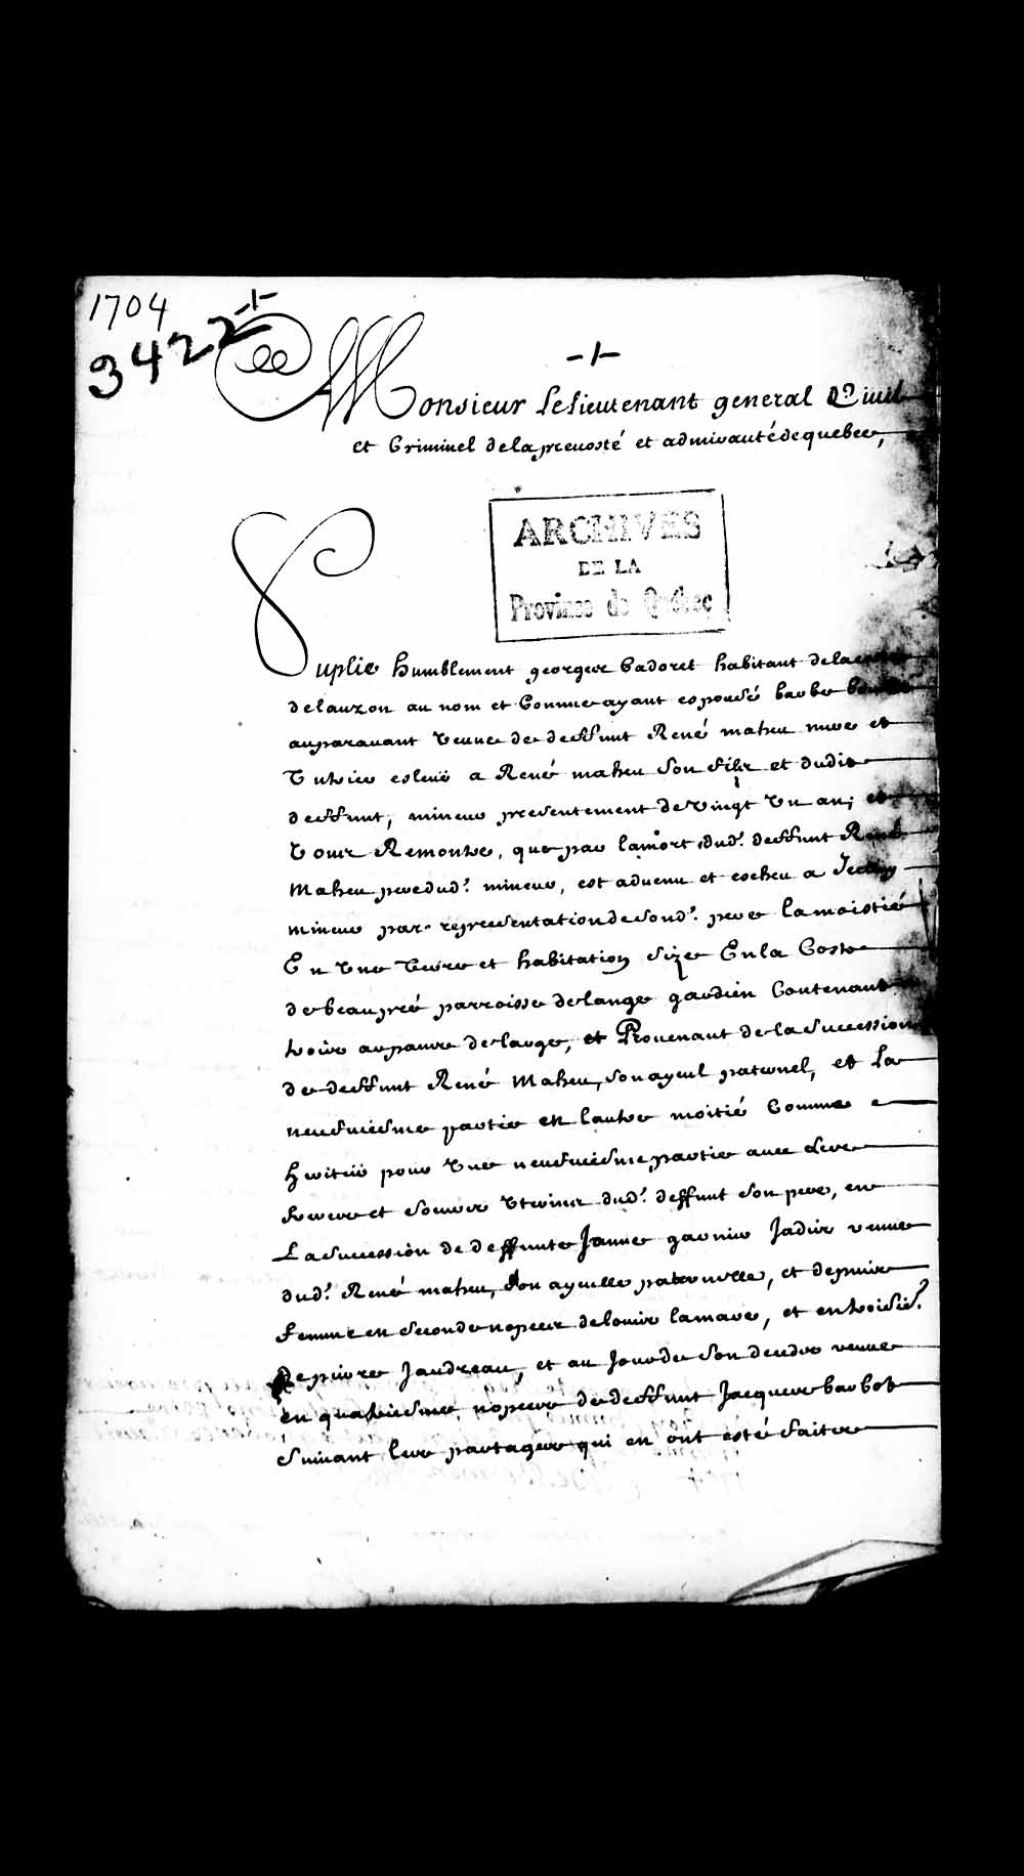 1704
3422
-/-
-/-
A Monsieur Le lieutenant general Ciuil
et Criminel de la preuosté et admirauté de quebec,
ARCHIVES
DE LA
Province de Québec
Suplie humblement georges Cadoret habitant de la
de lauzon au nom et Comme ayant espousé barbe
auparauant veuue de deffunt René maheu mere et
Tutrice esleuë a René maheu son fils et dudit
deffunt, mineur presentement de vingt vn an, et
Vous Remontre, que par la mort dud.t deffunt René
Maheu pere dud.t mineur, est aduenu et escheu a Iceluy
mineur par representation de sond.t pere la moistié
En vne terre et habitation size En la Coste
de beaupré parroisse de lange gardien Contenant
trois arpants de large, et Prouenant de la succession
de deffunt René Maheu, son ayeul paternel, et La
neufuiesme partie en lautre moitié Comme
heritié pour vne neufuiesme partie auec ses
freres et soeurs vterins dud.t deffunt son pere, en
La succession de deffunte Janne garnier Jadis veuue
dud.t René maheu, son ayeulle paternelle, et depuis
femme en seconde nopces de louis lamare, et en troisié.
De pierre Jandreau, et au Jour de son decedz veuue
en quatriesme nopces de deffunt Jacques barbot
suiuant les partages qui en ont esté faites